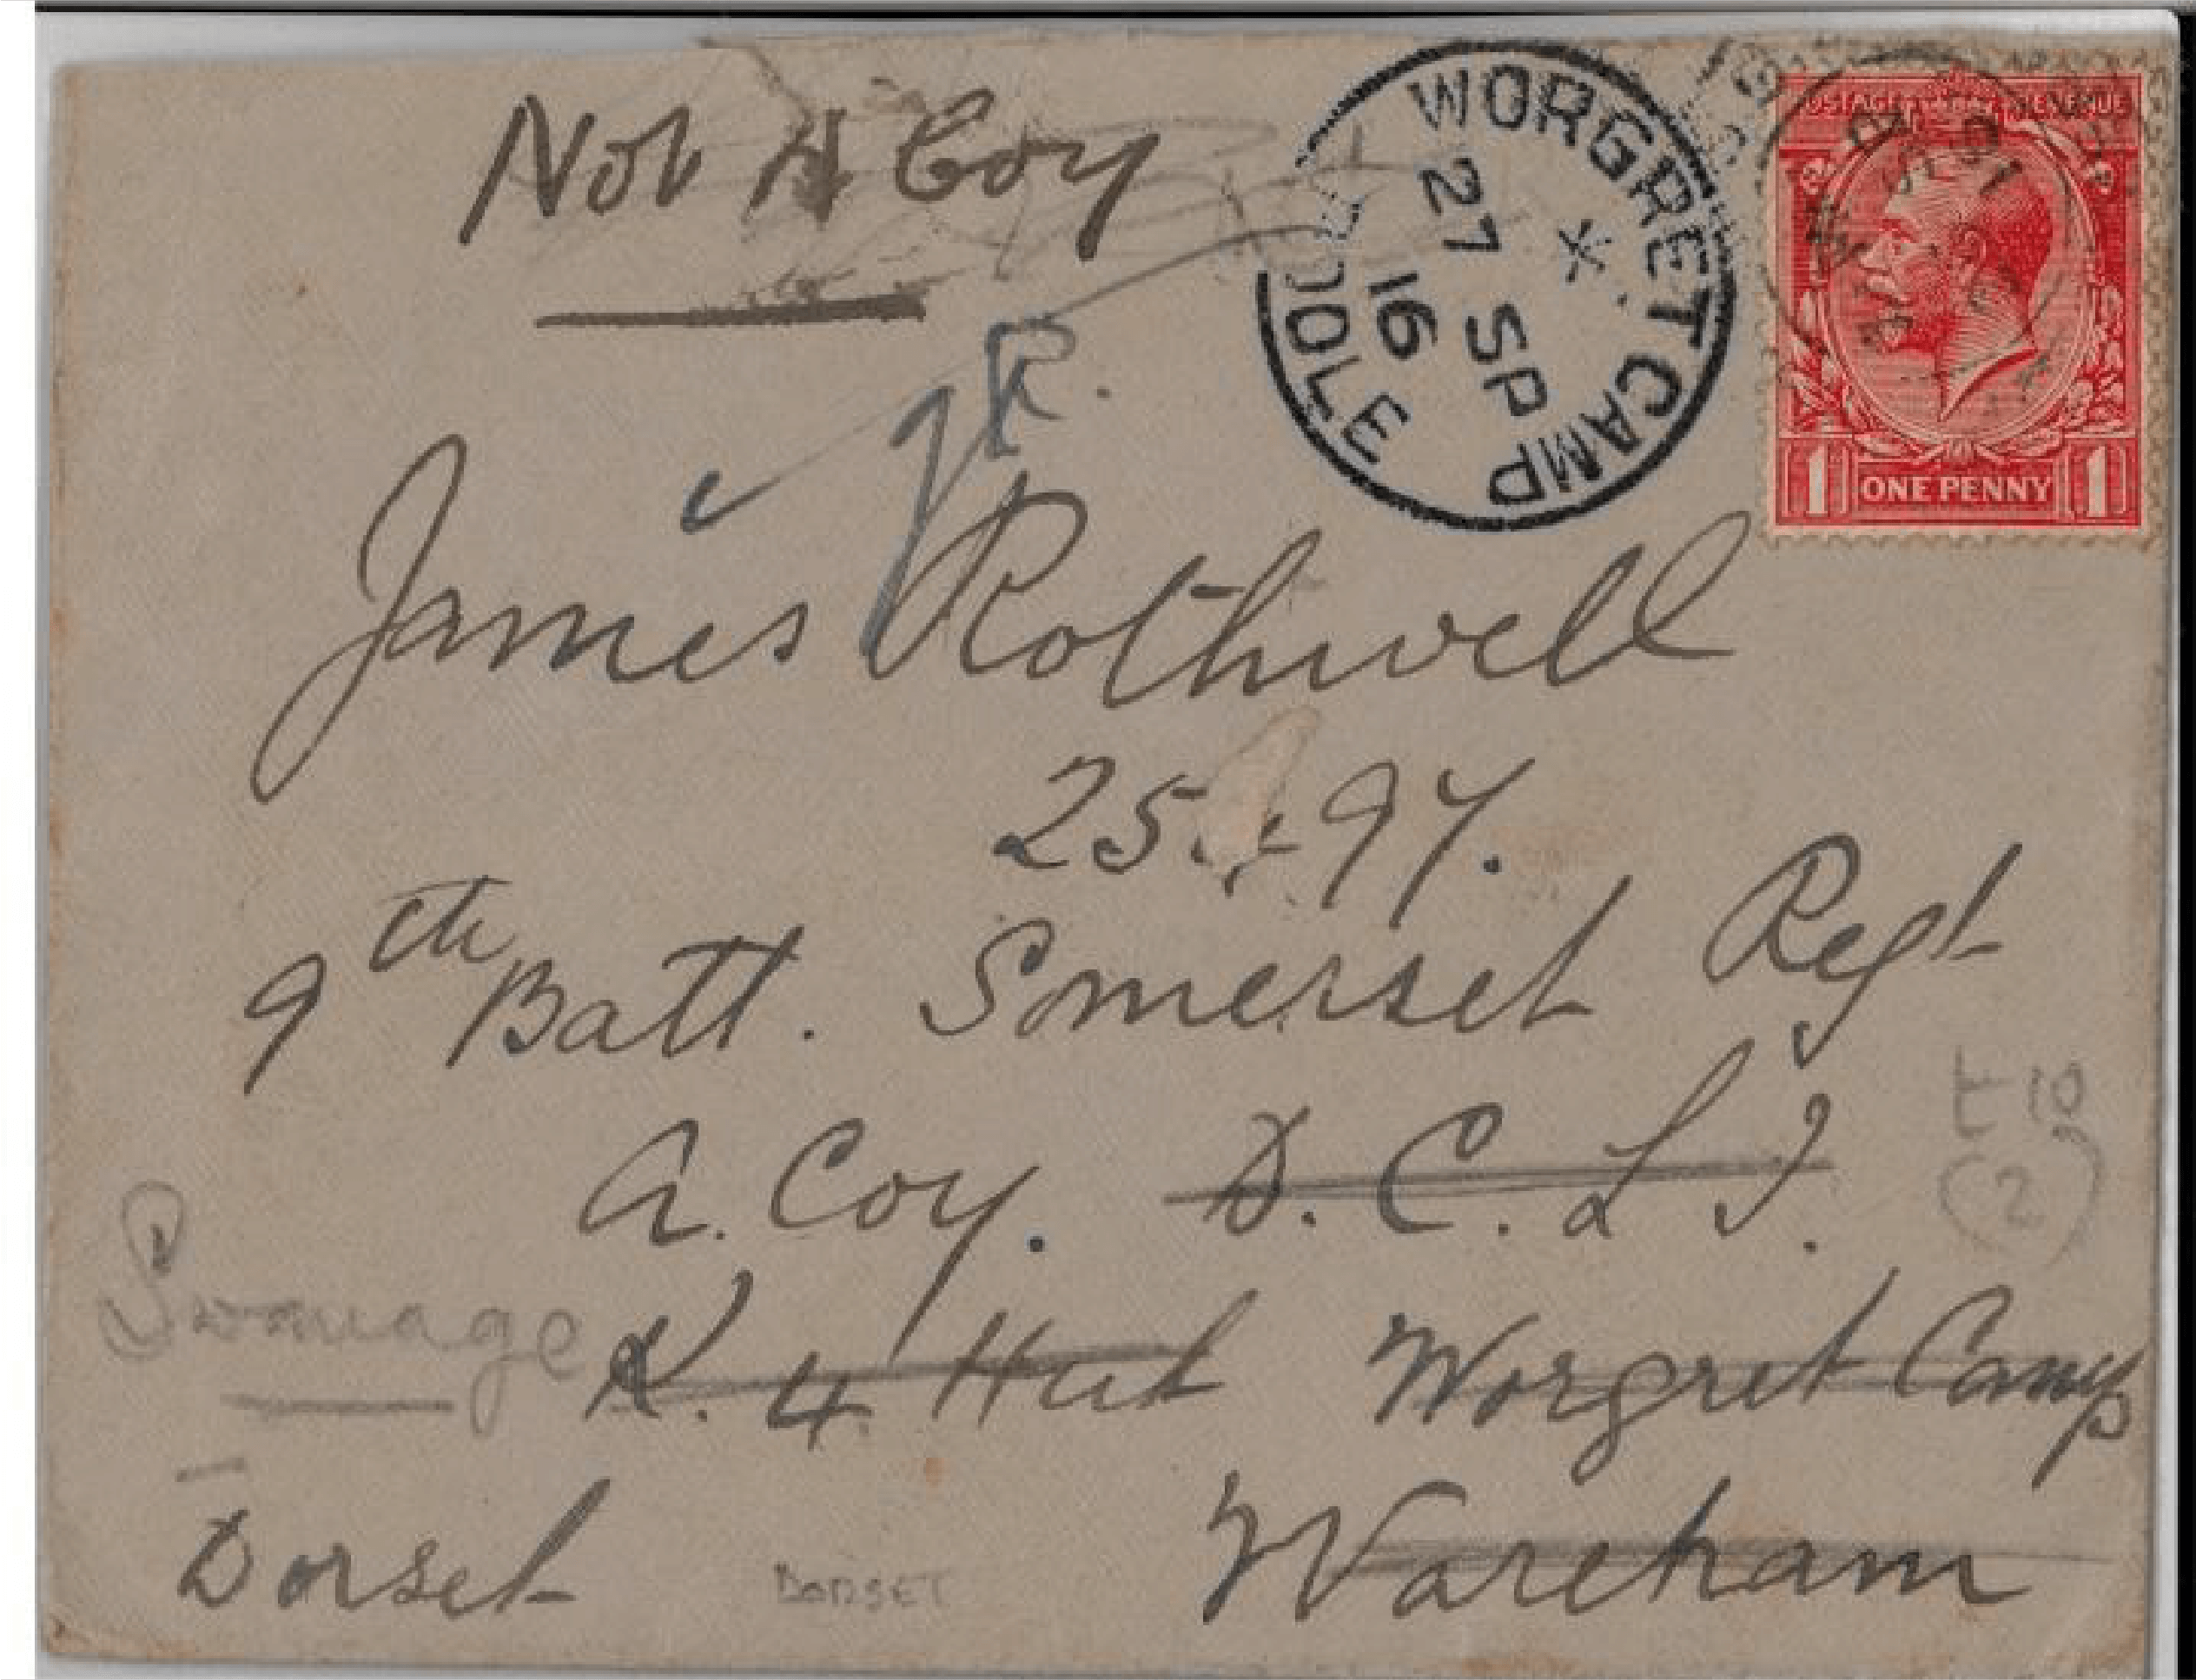 Not A Coy
WORGRET CAMP
27 SP
16
POSTAGE REVENUE
1 ONE PENNY 1
R.
James Rothwell
25497.
9th Batt. Somerset Regt
A. Coy. D. C. L I.
Swanage
4 Hut Worgret Camp
Dorset
DORSET
Wareham
(2)